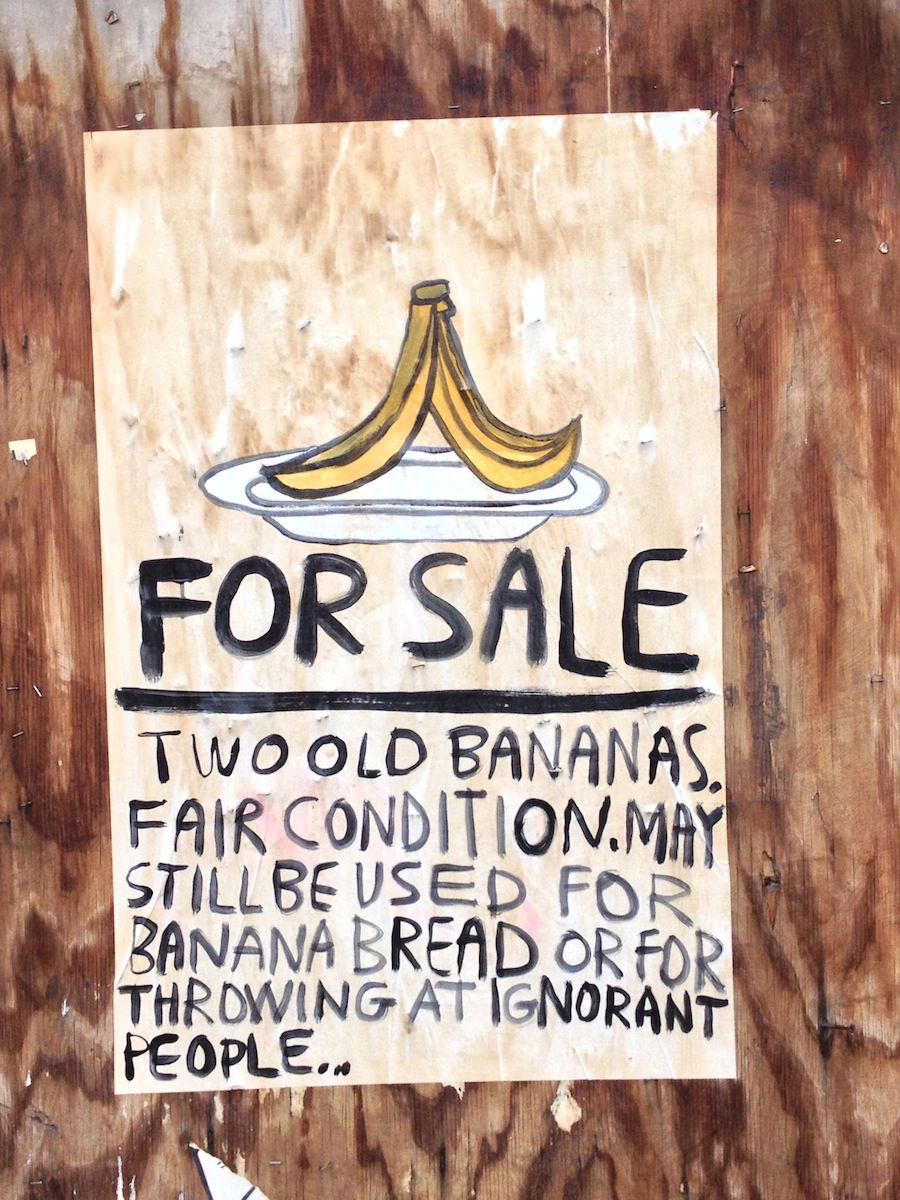 FOR SALE
TWO OLD BANANAS.
FAIR CONDITION. MAY
STILL BE USED FOR
BANANA BREAD OR FOR
THROWING AT IGNORANT
PEOPLE...